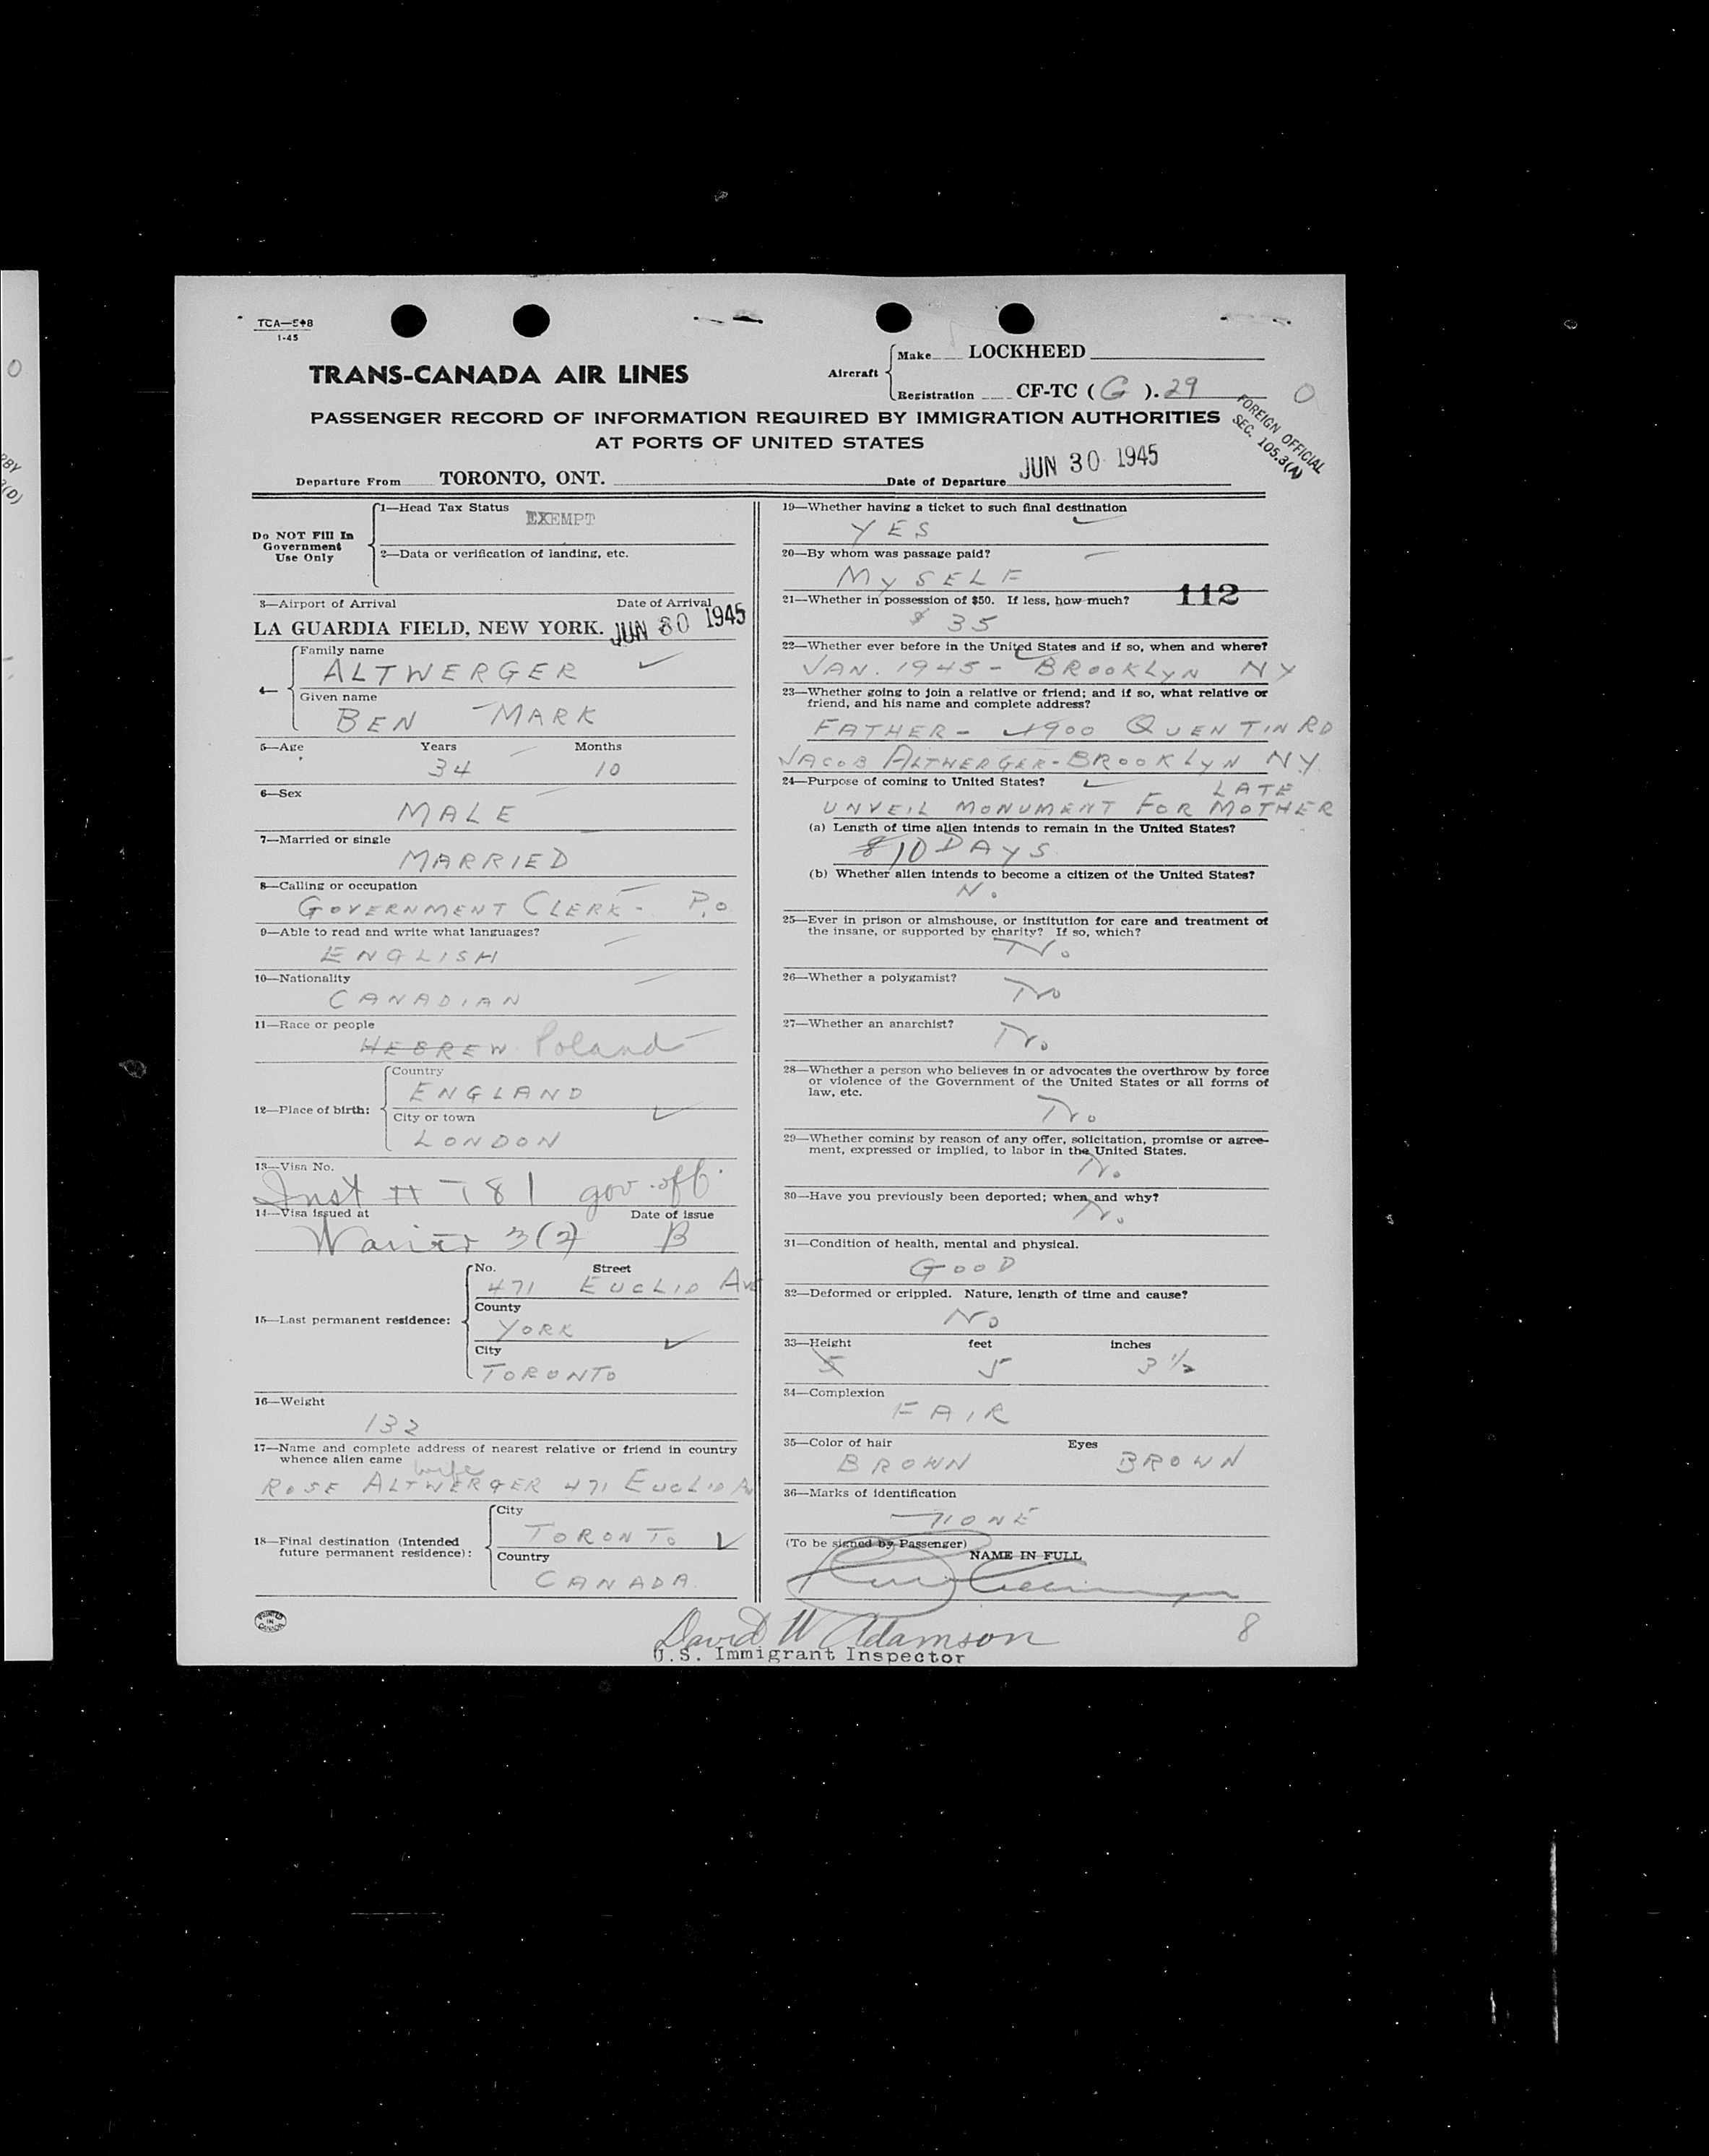 TCA—548
1-45
TRANS-CANADA AIR LINES
Aircraft
Make LOCKHEED
Registration CF-TC ( G ). 29
O
PASSENGER RECORD OF INFORMATION REQUIRED BY IMMIGRATION AUTHORITIES
AT PORTS OF UNITED STATES
FOREIGN OFFICIAL
SEC. 105.3(A)
Departure From TORONTO, ONT. Date of Departure JUN 30 1945
Do NOT Fill In
Government
Use Only
1—Head Tax Status EXEMPT
2—Data or verification of landing, etc.
3—Airport of Arrival Date of Arrival
LA GUARDIA FIELD, NEW YORK. JUN 30 1945
4—
Family name
ALTWERGER
Given name
BEN MARK
5—Age Years Months
34 10
6—Sex
MALE
7—Married or single
MARRIED
8—Calling or occupation
GOVERNMENT CLERK - P.O.
9—Able to read and write what languages?
ENGLISH
10—Nationality
CANADIAN
11—Race or people
HEBREW Poland
12—Place of birth:
Country
ENGLAND
City or town
LONDON
13—Visa No.
Inst # 781 gov. off.
14—Visa issued at Date of issue
Waiver 3(2) B
15—Last permanent residence:
No. Street
471 EUCLID AVE
County
YORK
City
TORONTO
16—Weight
132
17—Name and complete address of nearest relative or friend in country
whence alien came
wife
ROSE ALTWERGER 471 EUCLID AV
18—Final destination (Intended
future permanent residence):
City
TORONTO
Country
CANADA
PRINTED
IN
CANADA
19—Whether having a ticket to such final destination
YES
20—By whom was passage paid?
MYSELF
21—Whether in possession of $50. If less, how much? 112
$ 35
22—Whether ever before in the United States and if so, when and where?
JAN. 1945 - BROOKLYN NY
23—Whether going to join a relative or friend; and if so, what relative or
friend, and his name and complete address?
FATHER - 1900 QUENTIN RD
JACOB ALTWERGER - BROOKLYN NY.
24—Purpose of coming to United States?
LATE
UNVEIL MONUMENT FOR MOTHER
(a) Length of time alien intends to remain in the United States?
8 10 DAYS
(b) Whether alien intends to become a citizen of the United States?
No
25—Ever in prison or almshouse, or institution for care and treatment of
the insane, or supported by charity? If so, which?
No
26—Whether a polygamist?
No
27—Whether an anarchist?
No
28—Whether a person who believes in or advocates the overthrow by force
or violence of the Government of the United States or all forms of
law, etc.
No
29—Whether coming by reason of any offer, solicitation, promise or agree-
ment, expressed or implied, to labor in the United States.
No
30—Have you previously been deported; when and why?
No
31—Condition of health, mental and physical.
GOOD
32—Deformed or crippled. Nature, length of time and cause?
No
33—Height feet inches
5 5 3 1/2
34—Complexion
FAIR
35—Color of hair Eyes
BROWN BROWN
36—Marks of identification
NONE
(To be signed by Passenger)
NAME IN FULL
David W Adamson
U.S. Immigrant Inspector
8